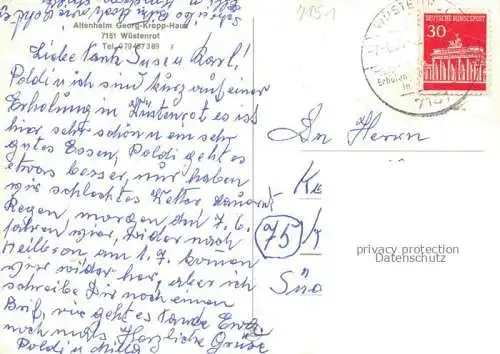 Altenheim Georg-Kropp-Haus
7151 Wüstenrot
Tel. 07945/7389
7151
WÜSTENROT
Erholen
in
7151
DEUTSCHE BUNDESPOST
30
Liebe Tante Susi u Karl!
Poldi u ich sind kurz auf einer
Erholung in Wüstenrot es ist
hier sehr schön u ein sehr
gutes Essen, Poldi geht es
etwas besser, nur haben
wir schlechtes Wetter dauernd
Regen, morgen den 7.6.
fahren wir wider nach
Heilbron am 1.7. komen
wir wider her, aber ich
schreibe Dir noch einen
Brif, wie geht es Tante
noch mals Herzliche Grüße
Poldi u Milla
An Herrn
75
privacy protection
Datenschutz